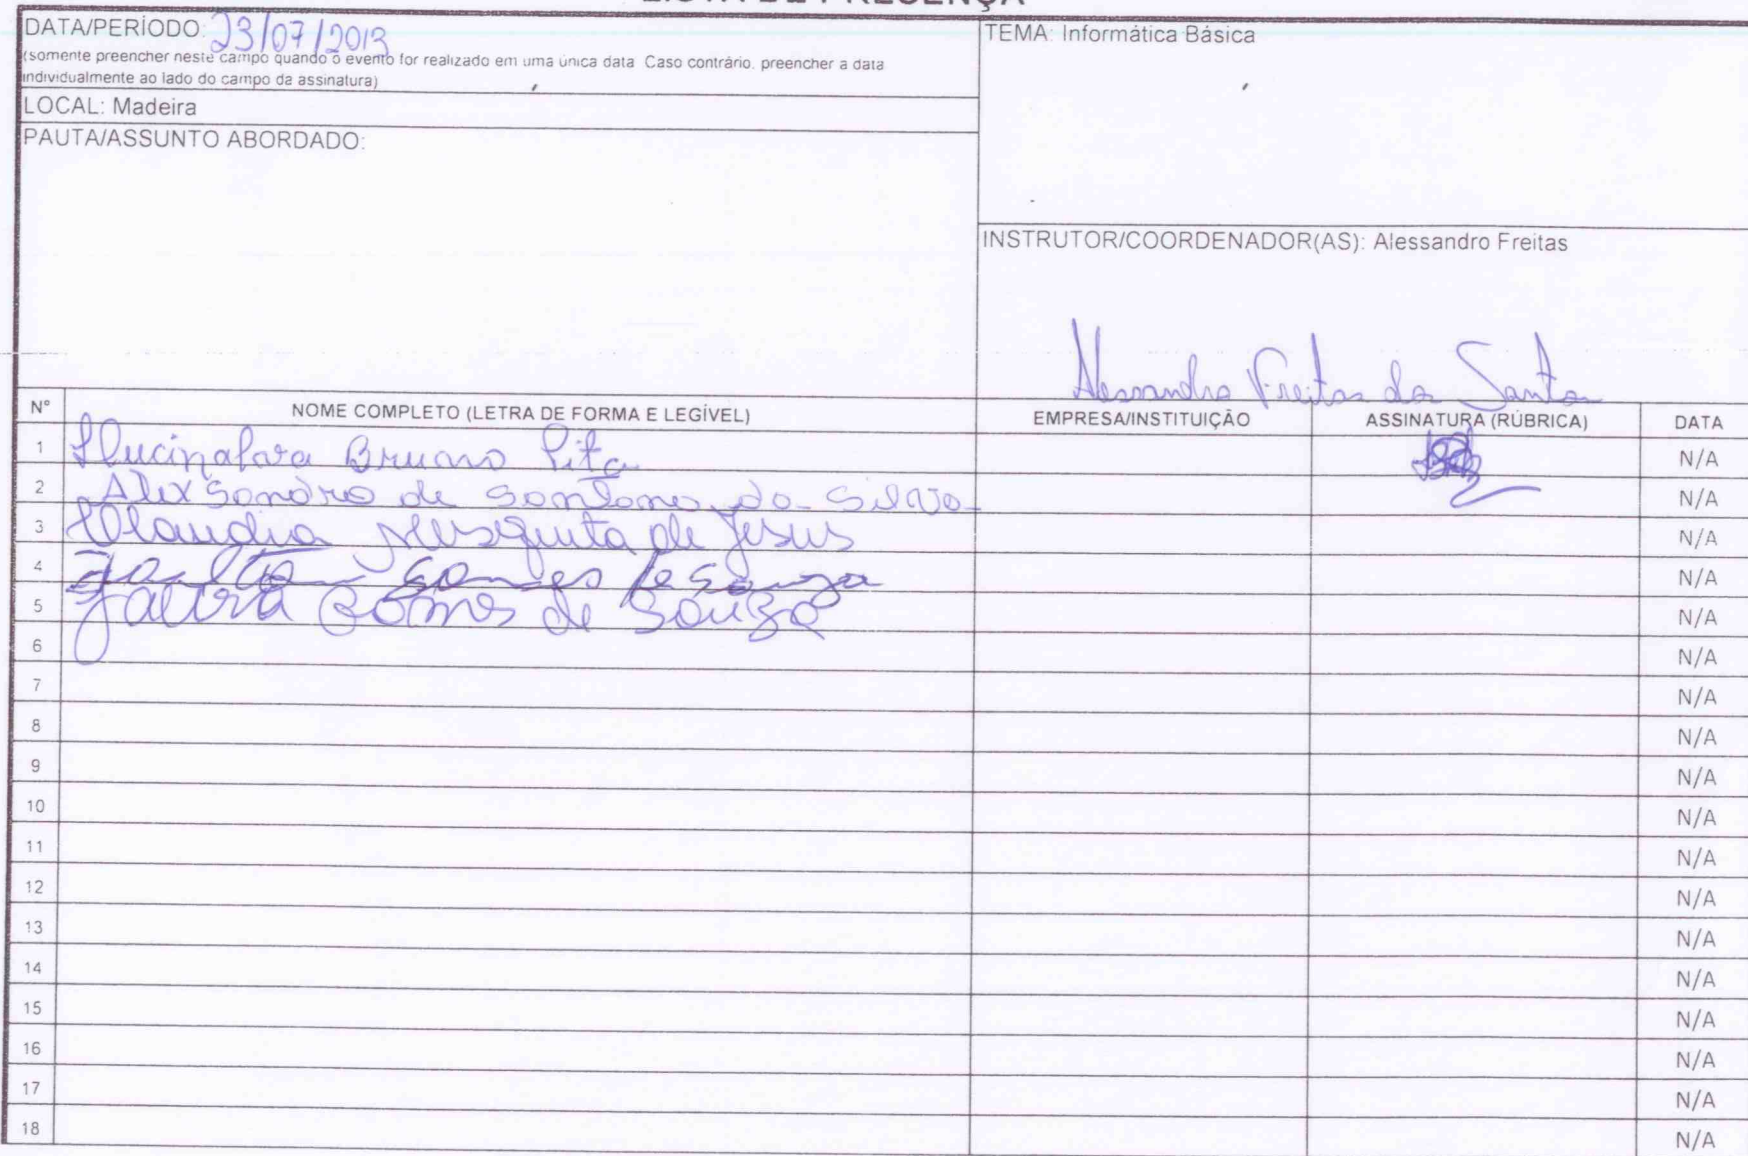 LISTA DE PRESENÇA
DATA/PERÍODO: 23/07/2013
(somente preencher neste campo quando o evento for realizado em uma única data Caso contrário, preencher a data
individualmente ao lado do campo da assinatura)
TEMA: Informática Básica
LOCAL: Madeira
PAUTA/ASSUNTO ABORDADO:
INSTRUTOR/COORDENADOR(AS): Alessandro Freitas
Alessandro Freitas dos Santos
Nº NOME COMPLETO (LETRA DE FORMA E LEGÍVEL) EMPRESA/INSTITUIÇÃO ASSINATURA (RÚBRICA) DATA
1 Bruno Pita N/A
2 Alexsandro de Santana da Silva N/A
3 Claudia Mesquita de Jesus N/A
4 Gomes de Souza N/A
5 Gomes de Souza N/A
6 N/A
7 N/A
8 N/A
9 N/A
10 N/A
11 N/A
12 N/A
13 N/A
14 N/A
15 N/A
16 N/A
17 N/A
18 N/A